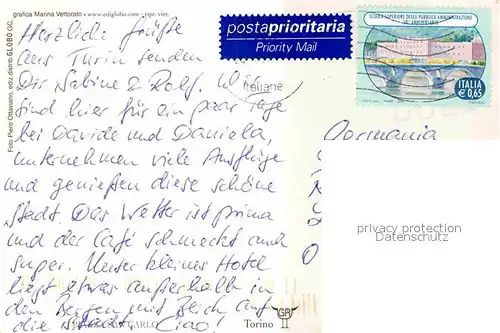 grafica Marina Vettorato • www.edigloba.com
Foto Piero Ottaviano, ediz.distrib. GLOBO GIC.
Herzliche Grüße
aus Turin senden
Dir Sabine & Rolf. Wir
sind hier für ein paar Tage
bei Davide und Daniela,
unternehmen viele Ausflüge
und genießen diese schöne
Stadt. Das Wetter ist prima
und der Café schmeckt auch
super. Unser kleines Hotel
liegt etwas außerhalb in
den Bergen mit Blick auf
die Stadt. Ciao!
postaprioritaria
Priority Mail
italiane
SCUOLA SUPERIORE DELLA PUBBLICA AMMINISTRAZIONE
50° ANNIVERSARIO
ITALIA
€ 0,65
Germania
privacy protection
Datenschutz
CARLO
Torino
GR
II